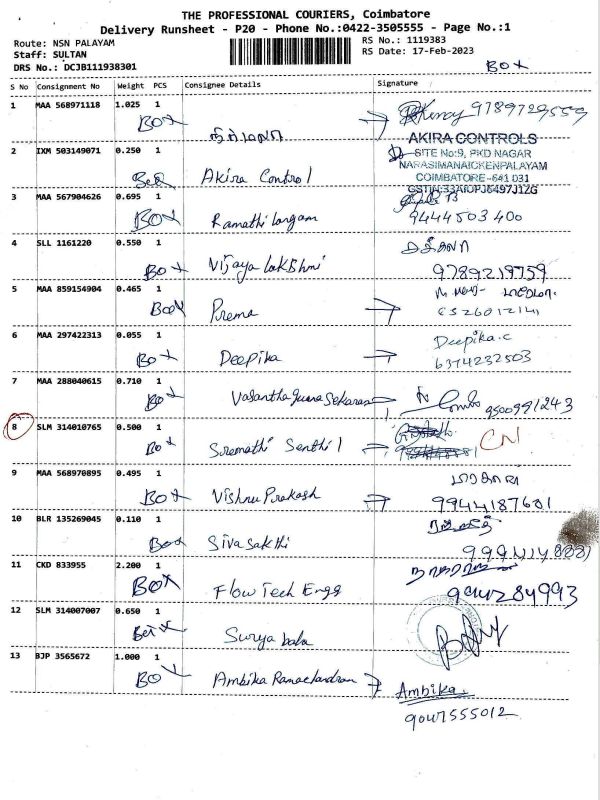 THE PROFESSIONAL COURIERS, Coimbatore
Delivery Runsheet - P20 - Phone No.:0422-3505555 - Page No.:1
Route: NSN PALAYAM
RS No.: 1119383
Staff: SULTAN
RS Date: 17-Feb-2023
DRS No.: DCJB111938301
BOX
S No Consignment No Weight PCS Consignee Details Signature
1 MAA 568971118 1.025 1
BOX நிர்மலா 9789729559
AKIRA CONTROLS
SITE No:9, PKD NAGAR
NARASIMANAICKENPALAYAM
COIMBATORE-641 031
GSTIN:33AIOPJ6497J1ZG
2 IXM 503149071 0.250 1
Akira Control
3 MAA 567904626 0.695 1
BOX Ramathilangam 9444503400
4 SLL 1161220 0.550 1
BOX Vijaya lakshmi 9789219759
5 MAA 859154904 0.465 1
BOX Prema
6 MAA 297422313 0.055 1 Deepika.c
BOX Deepika 6374232503
7 MAA 288040615 0.710 1
BOX Vasanthagunasekaran 9500991243
8 SLM 314010765 0.500 1
BOX Sremathi Senthil CN
9 MAA 568970895 0.495 1
BOX Vishnu Prakash 9944187601
10 BLR 135269045 0.110 1
BOX Sivasakthi
11 CKD 833955 2.200 1
BOX Flow Tech Engg
12 SLM 314007007 0.650 1
Surya bala
13 BJP 3565672 1.000 1
BOX Ambika Ramachandran Ambika.
9047555012